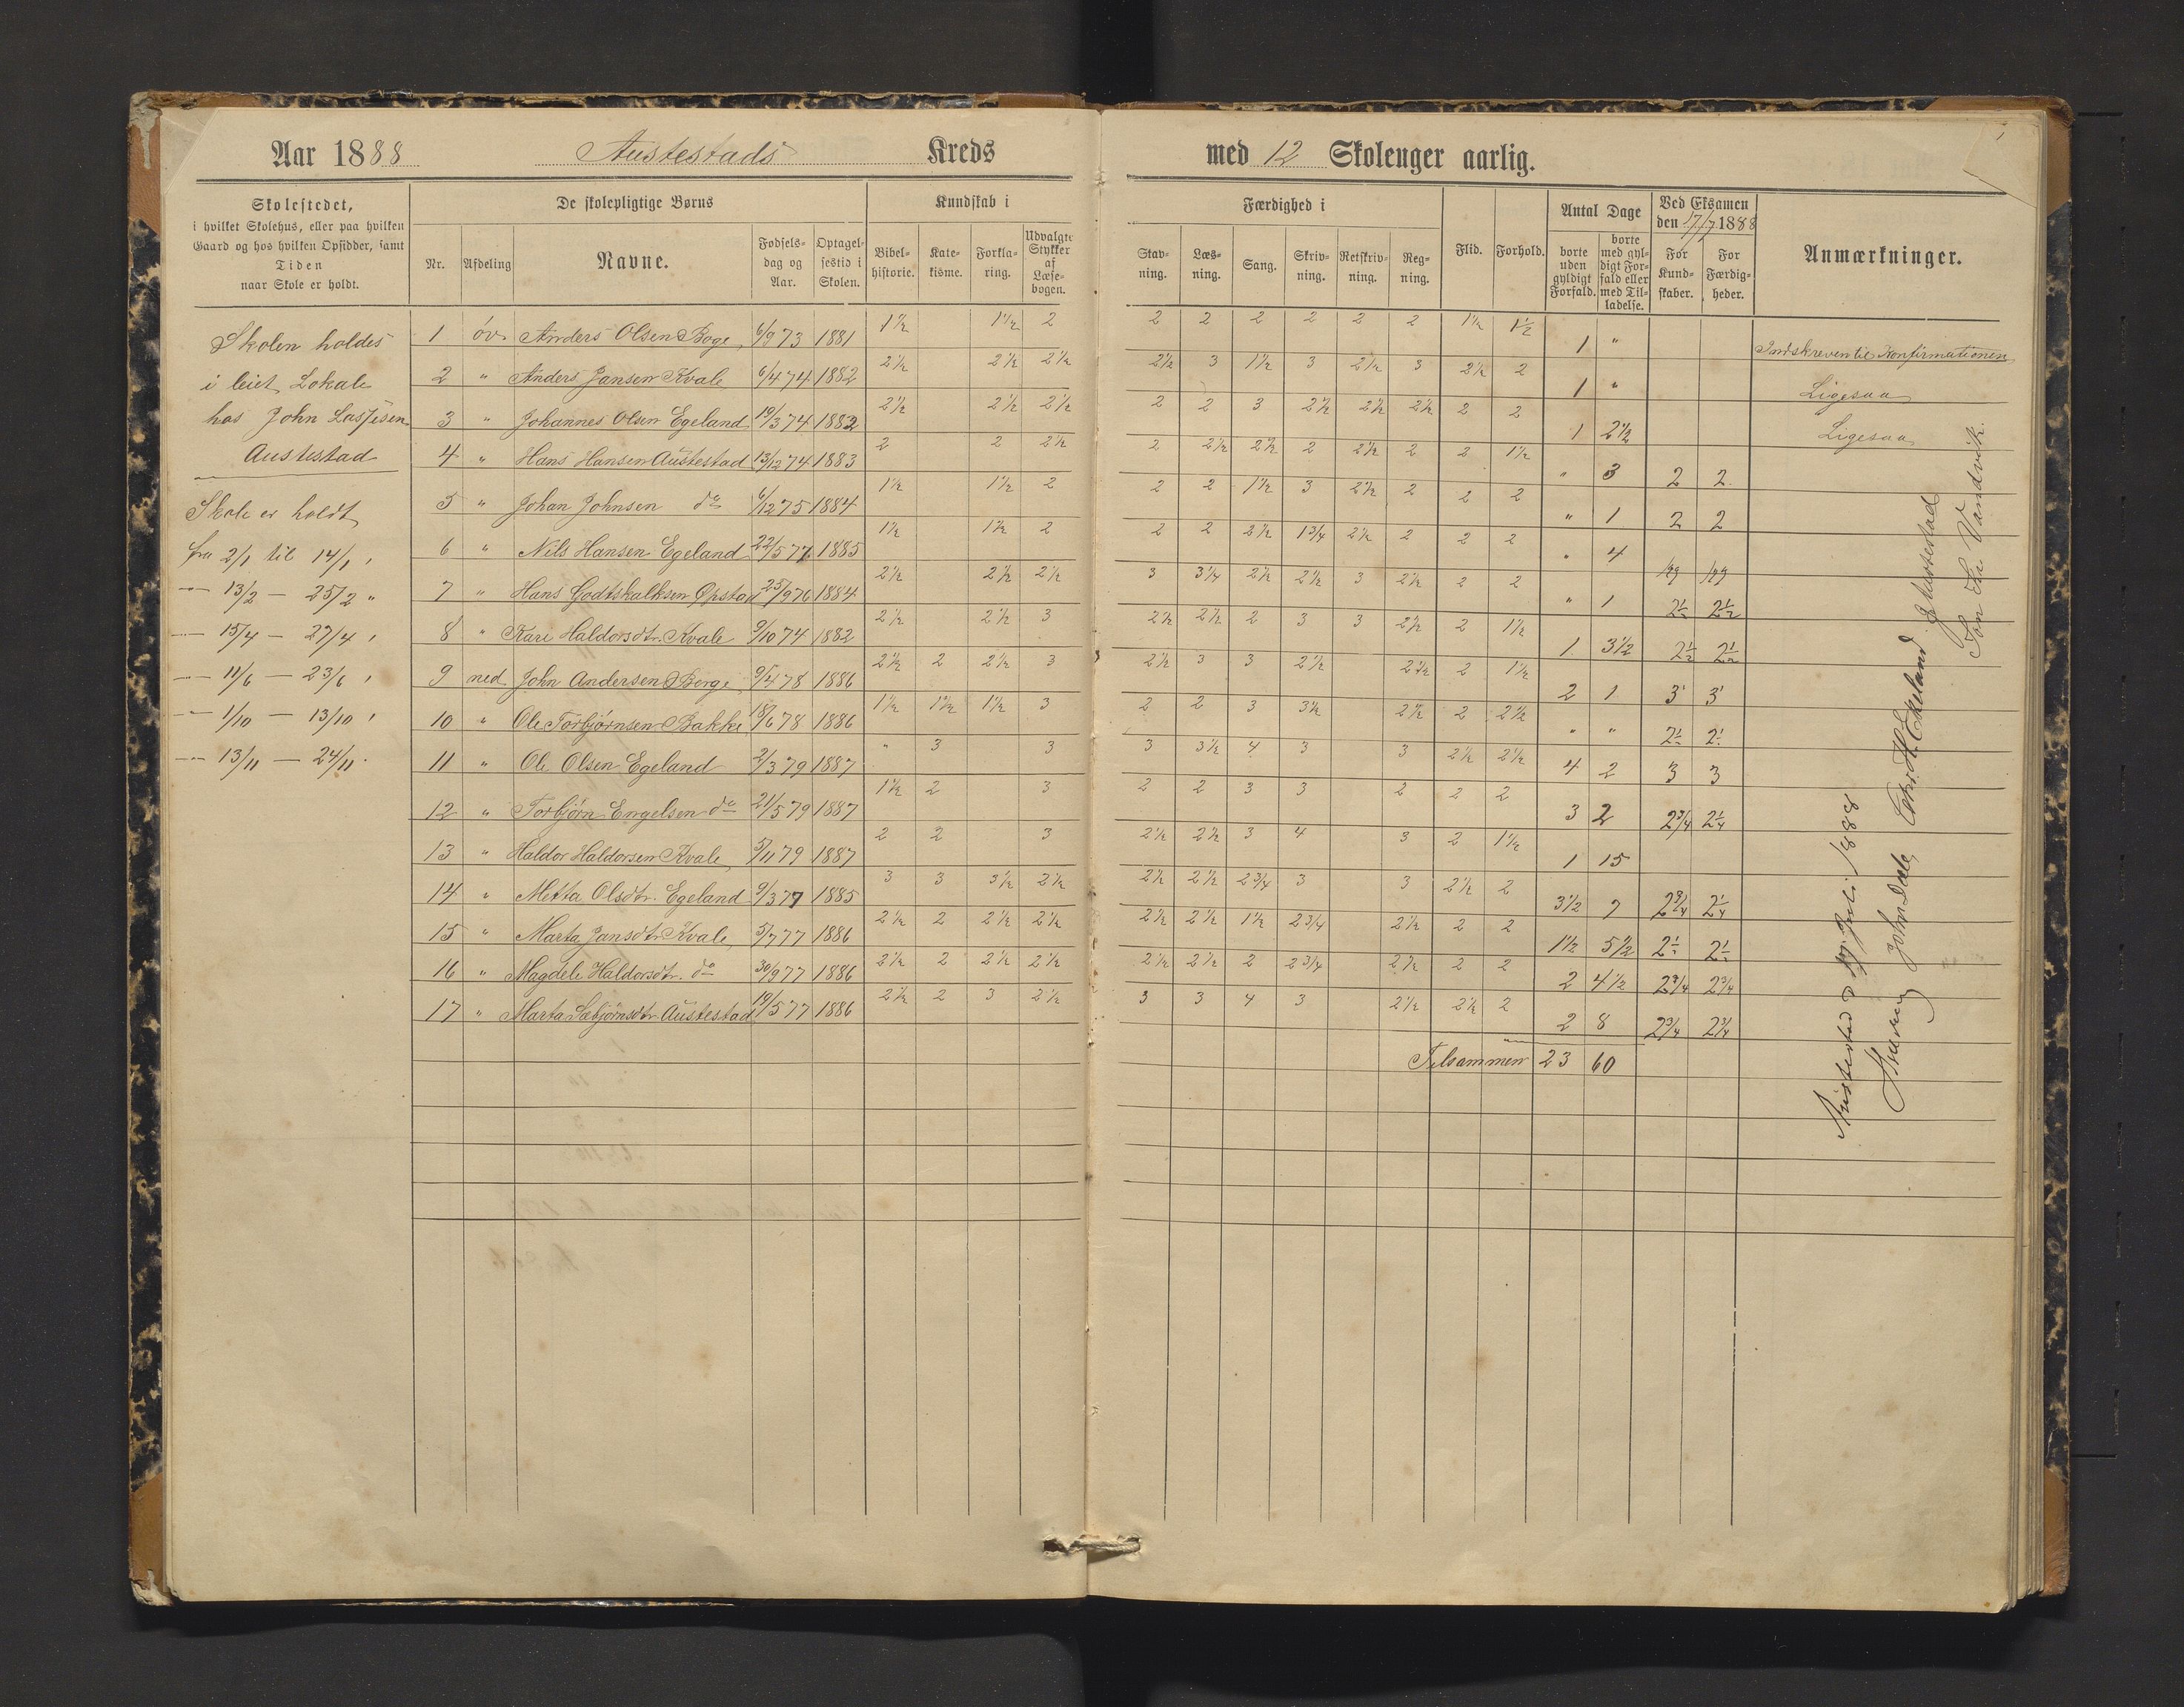 Aar 1888 Austestads Kreds med 12 Skoleuger aarlig.
Skolestedet,
i hvilket Skolehus, eller paa hvilken
Gaard og hos hvilken Opsidder, samt
Tiden
naar Skole er holdt.
De skolepligtige Børns
Nr. Afdeling Navne. Fødsels-dag og Aar. Optagel-sestid i Skolen.
Kundskab i
Bibel-historie. Kate-kisme. Forkla-ring. Udvalgte Stykker af Læse-bogen.
Færdighed i
Stav-ning. Læs-ning. Sang. Skriv-ning. Retskriv-ning. Reg-ning.
Flid. Forhold.
Antal Dage
borte uden gyldigt Forfald. borte med gyl-digt For-fald eller med Til-ladelse.
Ved Eksamen
den 17/7 1888
For Kund-skaber. For Færdig-heder.
Anmærkninger.
Skolen holdes
i leiet Lokale
hos John Lassesen
Austestad
Skole er holdt
fra 2/1 til 14/1,
— 13/2 — 25/2 "
— 15/4 — 27/4,
— 11/6 — 23/6,
— 1/10 — 13/10,
— 13/11 — 24/11.
1 øv. Anders Olsen Boge 6/9 73 1881 1½ 1½ 2 2 2 2 2 2 2 1½ 1½ 1 " Indskreven til Konfirmationen
2 " Anders Jansen Kvale 6/4 74 1882 2½ 2½ 2½ 2½ 3 1½ 3 2½ 3 2½ 2 1 " Ligesaa
3 " Johannes Olsen Egeland 19/3 74 1882 2½ 2½ 2½ 2 2 3 2½ 2½ 2½ 2 2 1 2½ Ligesaa
4 " Hans Hansen Austestad 13/12 74 1883 2 2 2½ 2 2½ 2½ 2 2½ 2 2 1½ " 3 2 2
5 " Johan Johnsen do 6/12 75 1884 1½ 1½ 2 2 2 1½ 3 2½ 2 2 2 " 1 2 2
6 " Nils Hansen Egeland 22/5 77 1885 1½ 1½ 2 2 2 2½ 1¾ 2½ 2 2 2 " 4
7 " Hans Godtskalksen Opstad 25/9 76 1884 2½ 2½ 2½ 3 3¼ 2½ 2½ 3 2½ 2 2 " 1 2½ 2½
8 " Kari Haldorsdtr. Kvale 9/10 74 1882 2½ 2½ 3 2½ 2½ 2 3 3 2½ 2 1½ 1 3½ 2½ 2½
9 ned John Andersen Borge 9/4 78 1886 2½ 2 2½ 3 2½ 3 3 2½ 2½ 2 1½ 2 1 3 3
10 " Ole Torbjørnsen Bakke 18/6 78 1886 1½ 1½ 1½ 3 2 2 3 3½ 2½ 2 2½ " "
11 " Ole Olsen Egeland 2/3 79 1887 " 3 3 3 3½ 4 3 3 2½ 2½ 4 2 3 3
12 " Torbjørn Engelsen do 21/5 79 1887 1½ 2 3 2 2 3 3 2 2 2 3 2 2¾ 2¼
13 " Haldor Haldorsen Kvale 5/11 79 1887 2 2 3 2½ 2½ 3 4 3 2 1½ 1 15
14 " Metta Olsdtr. Egeland 9/3 77 1885 3 3 3½ 2½ 2½ 2½ 2¾ 3 3 2½ 2 3½ 7 2¾ 2¼
15 " Marta Jansdtr Kvale 5/7 77 1886 2½ 2 2½ 2½ 2½ 2½ 1½ 2¾ 2½ 2 2 1½ 5½
16 " Magdele Haldorsdtr. do 30/9 77 1886 2½ 2 2½ 2½ 2½ 2½ 2 2¾ 2½ 2 2 2 4½ 2¾ 2¾
17 " Marta Sæbjørnsdtr Austestad 19/5 77 1886 2½ 2 3 2½ 3 3 4 3 2½ 2½ 2 2 8 2¾ 2¾
Tilsammen 23 60
Austestad d 17 Juli 1888
John Dale Chr. H. Ekeland J Austestad
Vandvik.